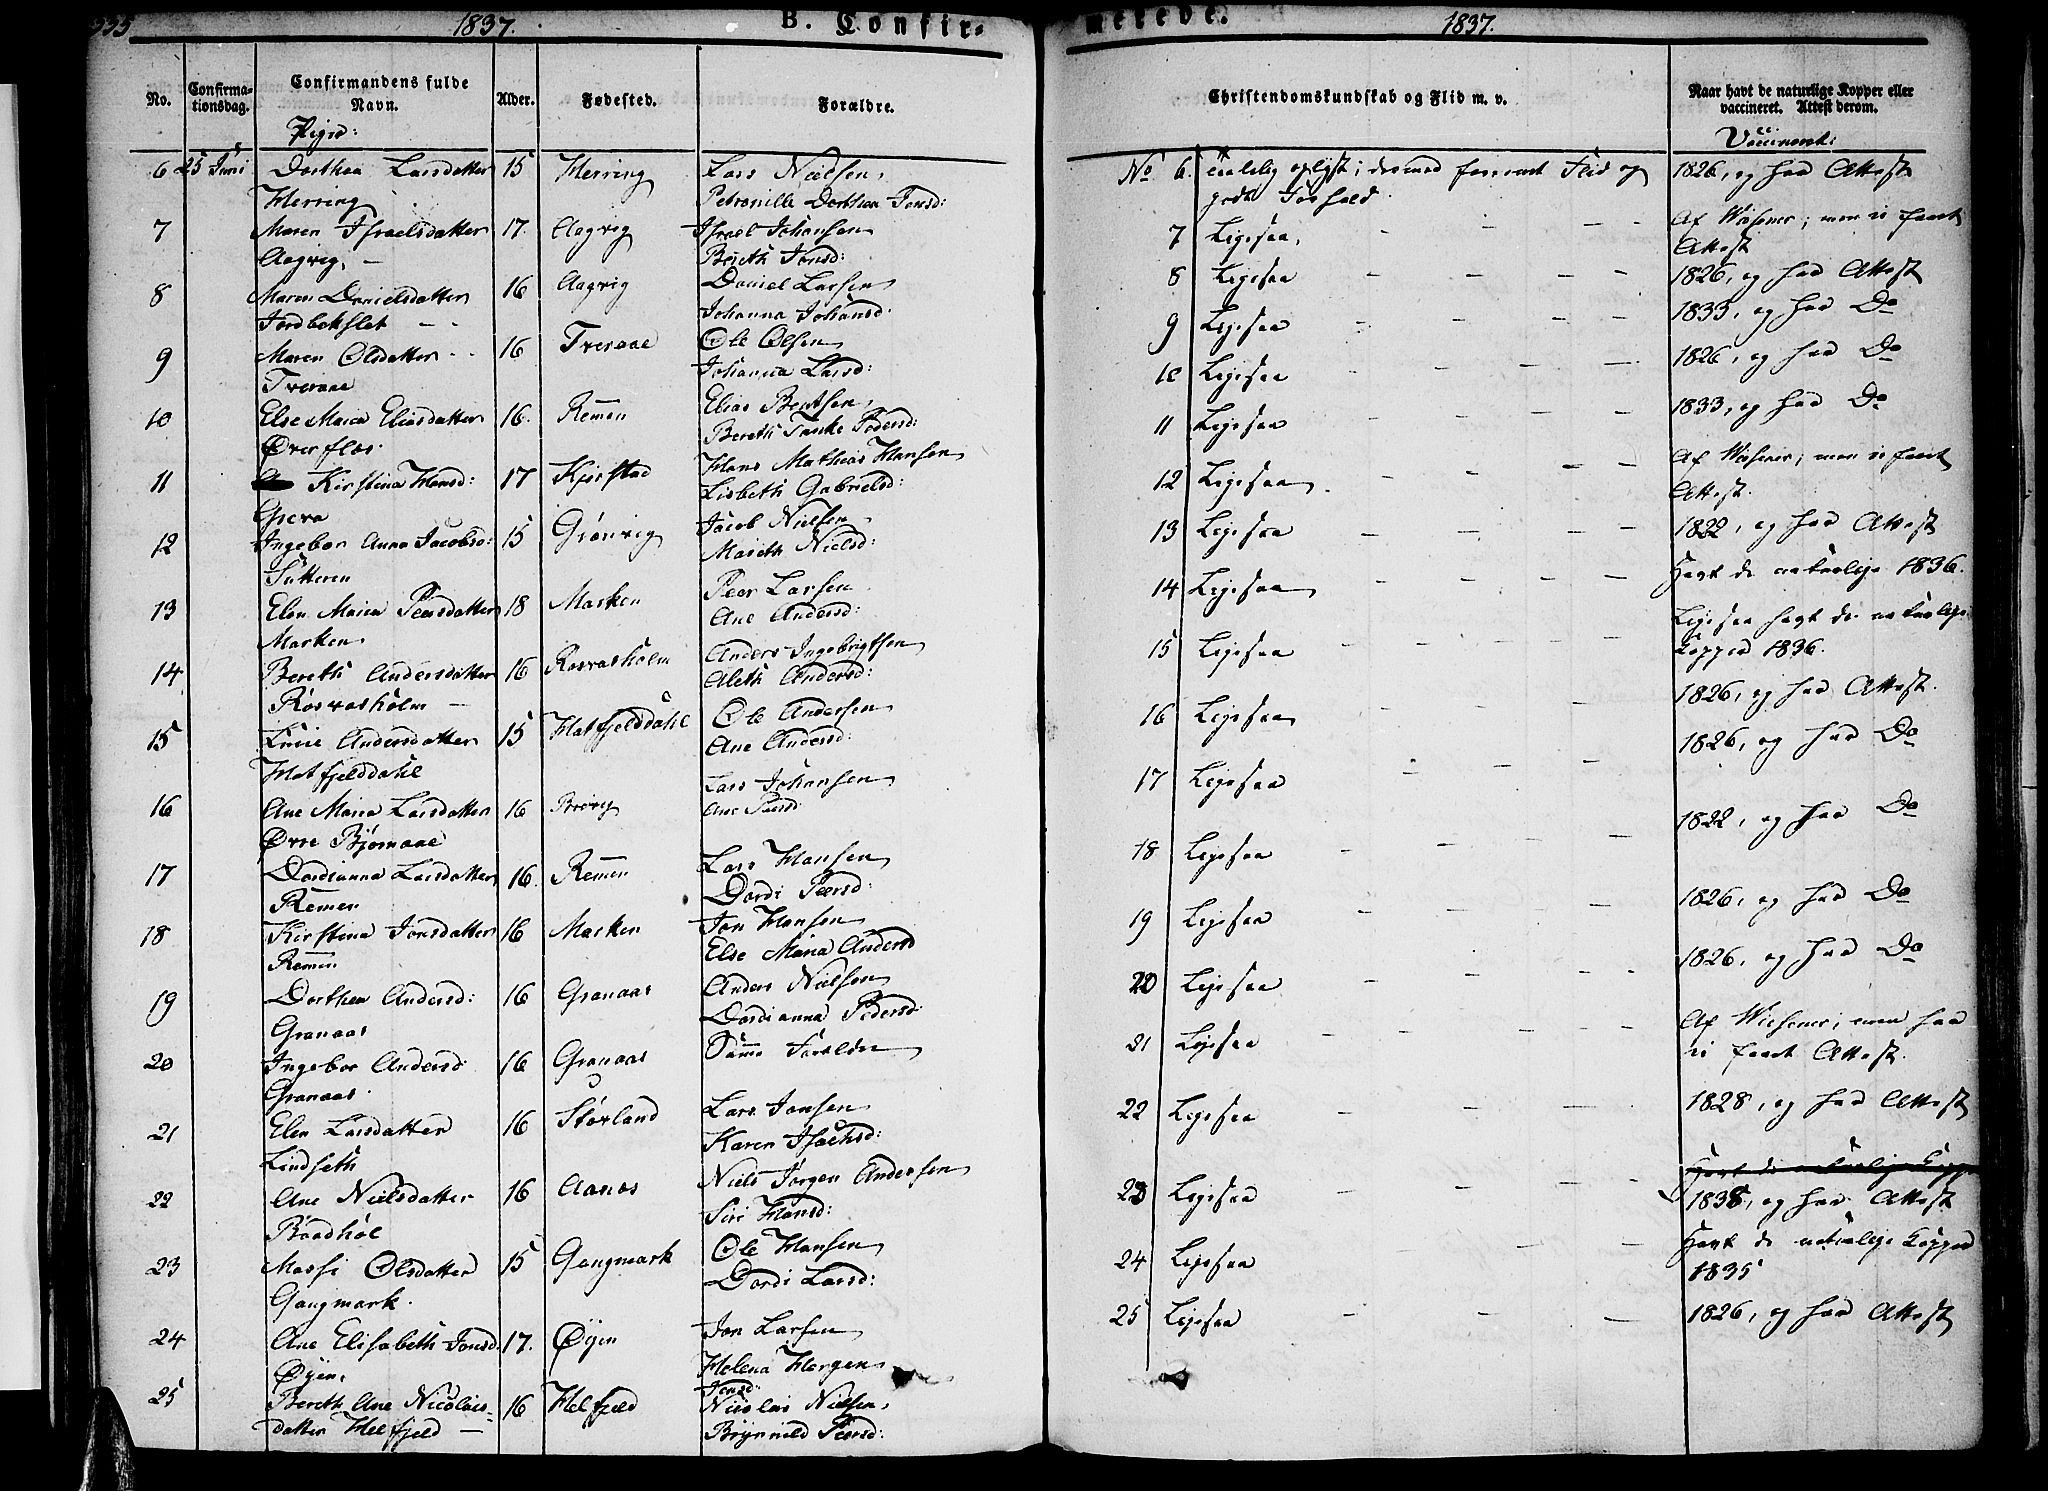 335
1837.
B. Confir-
Confirmandens fulde
No. Confirma-
tionsdag. Navn. Alder. Fødested. Forældre.
Piger:
6 25 Juni Dorthea Larsdatter 15 Herring Lars Nielsen
Herring Petronille Dorthea Jonsd:
7 Maren Israelsdatter 17. Aagvig Israel Johansen
Aagvig. — Bereth Jonsd:
8 Maren Danielsdatter 16 Aagvig Daniel Larsen
Johanna Johansd:
9 Maren Olsdatter 16 Tveraae Ole Olsen
Tveraae Johanna Larsd:
10 Else Maria Eliasdatter 16. Remen Elias Bentsen
Bereth Pedersd:
11 Kirstina Hansd: 17 Kjerstad Hans Mathias Hansen
Lisbeth Gabrielsd:
12 Ingebor Anna Jacobsd: 15 Grønvig Jacob Nielsen
Mareth Nielsd:
13 Elen Maria Peersdatter 18 Marken Peer Larsen
Marken Ane Andersd:
14 Bereth Andersdatter 16 Røsvasholm Anders Ingebrigtsen
Røsvasholm — Aleth Andersd:
15 Andersdatter 15 Hatfjelddahl Ole Andersen
Hatfjelddahl Ane Andersd:
16 Ane Maria Larsdatter 16 Lars Johansen
Øvre Bjørnaae Ane
17 Dordianna Larsdatter 16. Remen Lars Hansen
Remen Dordi Peersd:
18 Kirstina Jonsdatter 16 Marken Jon Hansen
Remen Else Maria Andersd
19 Dorthea Andersd: 16 Granaas Anders Nielsen
Granaas Dordianna Pedersd
20 Ingebor Andersd: 16 Granaas Samme Forældre
Granaas
21 Elen Larsdatter 16 Størland Lars Jonsen
Lindseth Karen Isachsd:
22 Ane Nielsdatter 16 Aanes Niels Jørgen Andersen
Siri Hansd:
23 Massi Olsdatter 15 Gangmark Ole Hansen
Gangmark. Dordi Larsd:
24 Ane Elisabeth Jonsd. 17. Øyen Jon Larsen
Øyen. Helena
Jonsd:
25 Bereth Ane Nicolais- 16 Helfjeld Nicolai Nielsen
datter Helfjeld — Brynnild Peersd:
merede.
1837.
Christendomskundskab og Flid m. v. Naar havt de naturlige Kopper eller
vaccineret. Attest derom.
Vaccineret:
No 6. oplyst; dermed forenet Flid og 1826, og har Attest
godt Forhold
7 Ligesaa, Af Wiesener; men ei faaet
Attest
8 Ligesaa 1826, og har Attest
9 Ligesaa 1833, og har Do
10 Ligesaa 1826, og har Do
11 Ligesaa 1833, og har Do
12 Ligesaa Af Wiesener; men ei faaet
Attest.
13 Ligesaa 1822, og har Attest
14 Ligesaa Havt de naturlige 1836.
15 Ligesaa Ligesaa havt de naturlige
Kopper 1836.
16 Ligesaa 1826, og har Attest.
17 Ligesaa 1826, og har Do
18 Ligesaa 1822, og har Do
19 Ligesaa 1826, og har Do
20 Ligesaa 1826, og har Do
21 Ligesaa Af Wiesener; men har
ei faaet Attest.
22 Ligesaa 1828, og har Attest
23 Ligesaa og har Attest
24 Ligesaa Havt de naturlige Kopper
1835
25 Ligesaa 1826, og har Attest